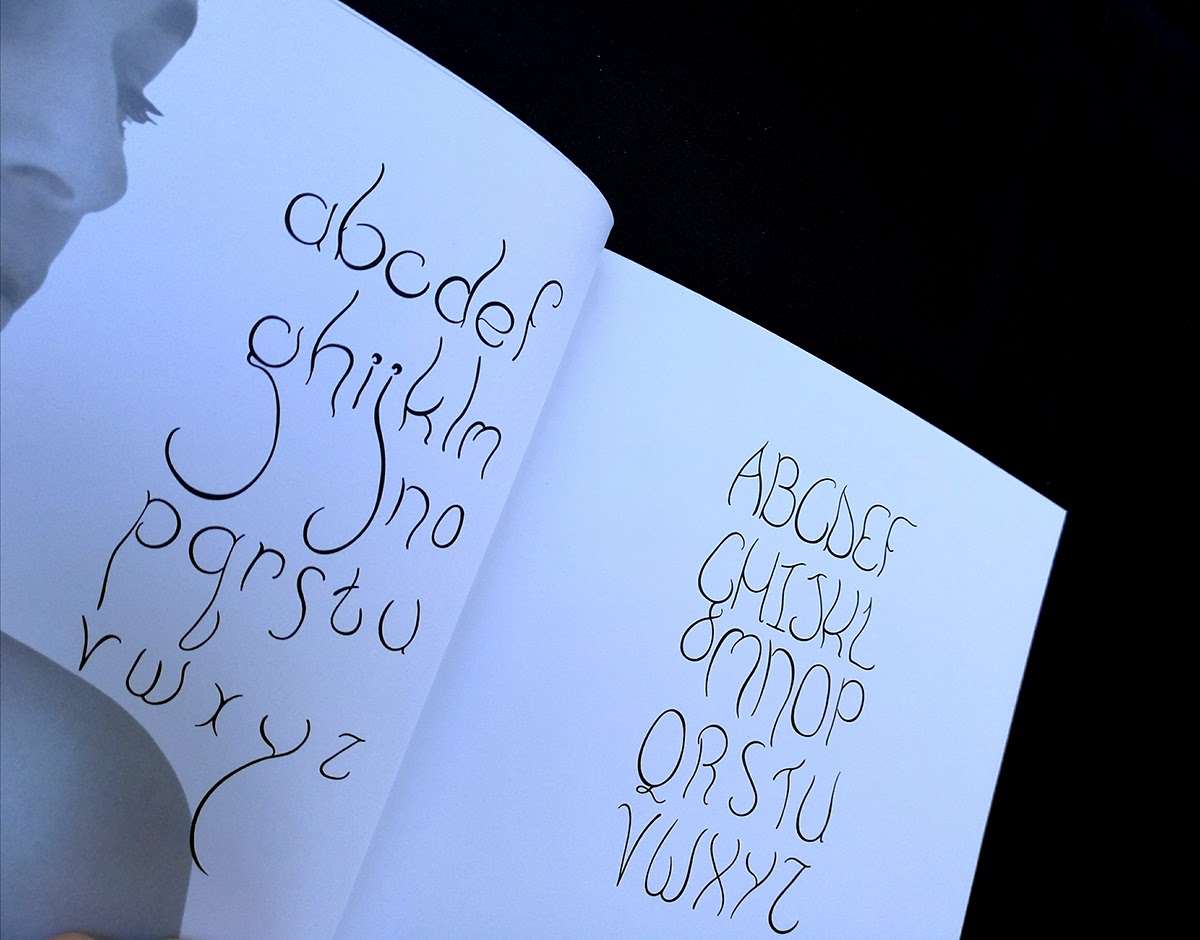 abcdef
ghijklm
no
pqrstu
vwxyz
ABCDEF
GHIJKL
MNOP
QRSTU
VWXYZ